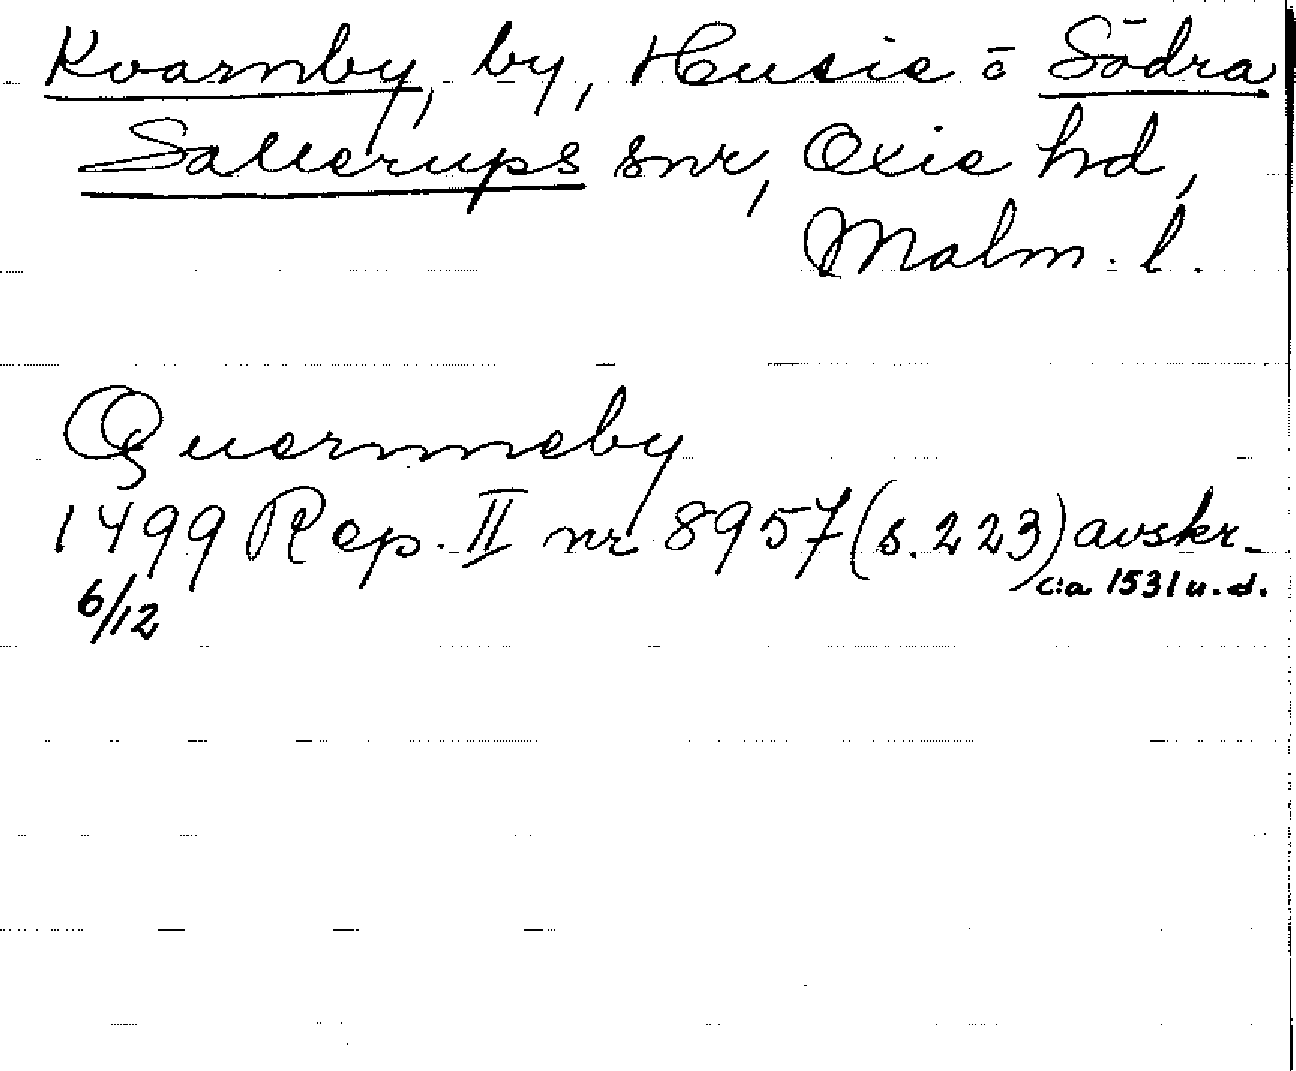 Kvarnby, by, Husie o Södra
Sallerups snr, Oxie hd,
Malm. l.
Quernneby
1499 Rep. II nr 8957 (s. 223) avskr.
6/12 c:a 1531 u. d.